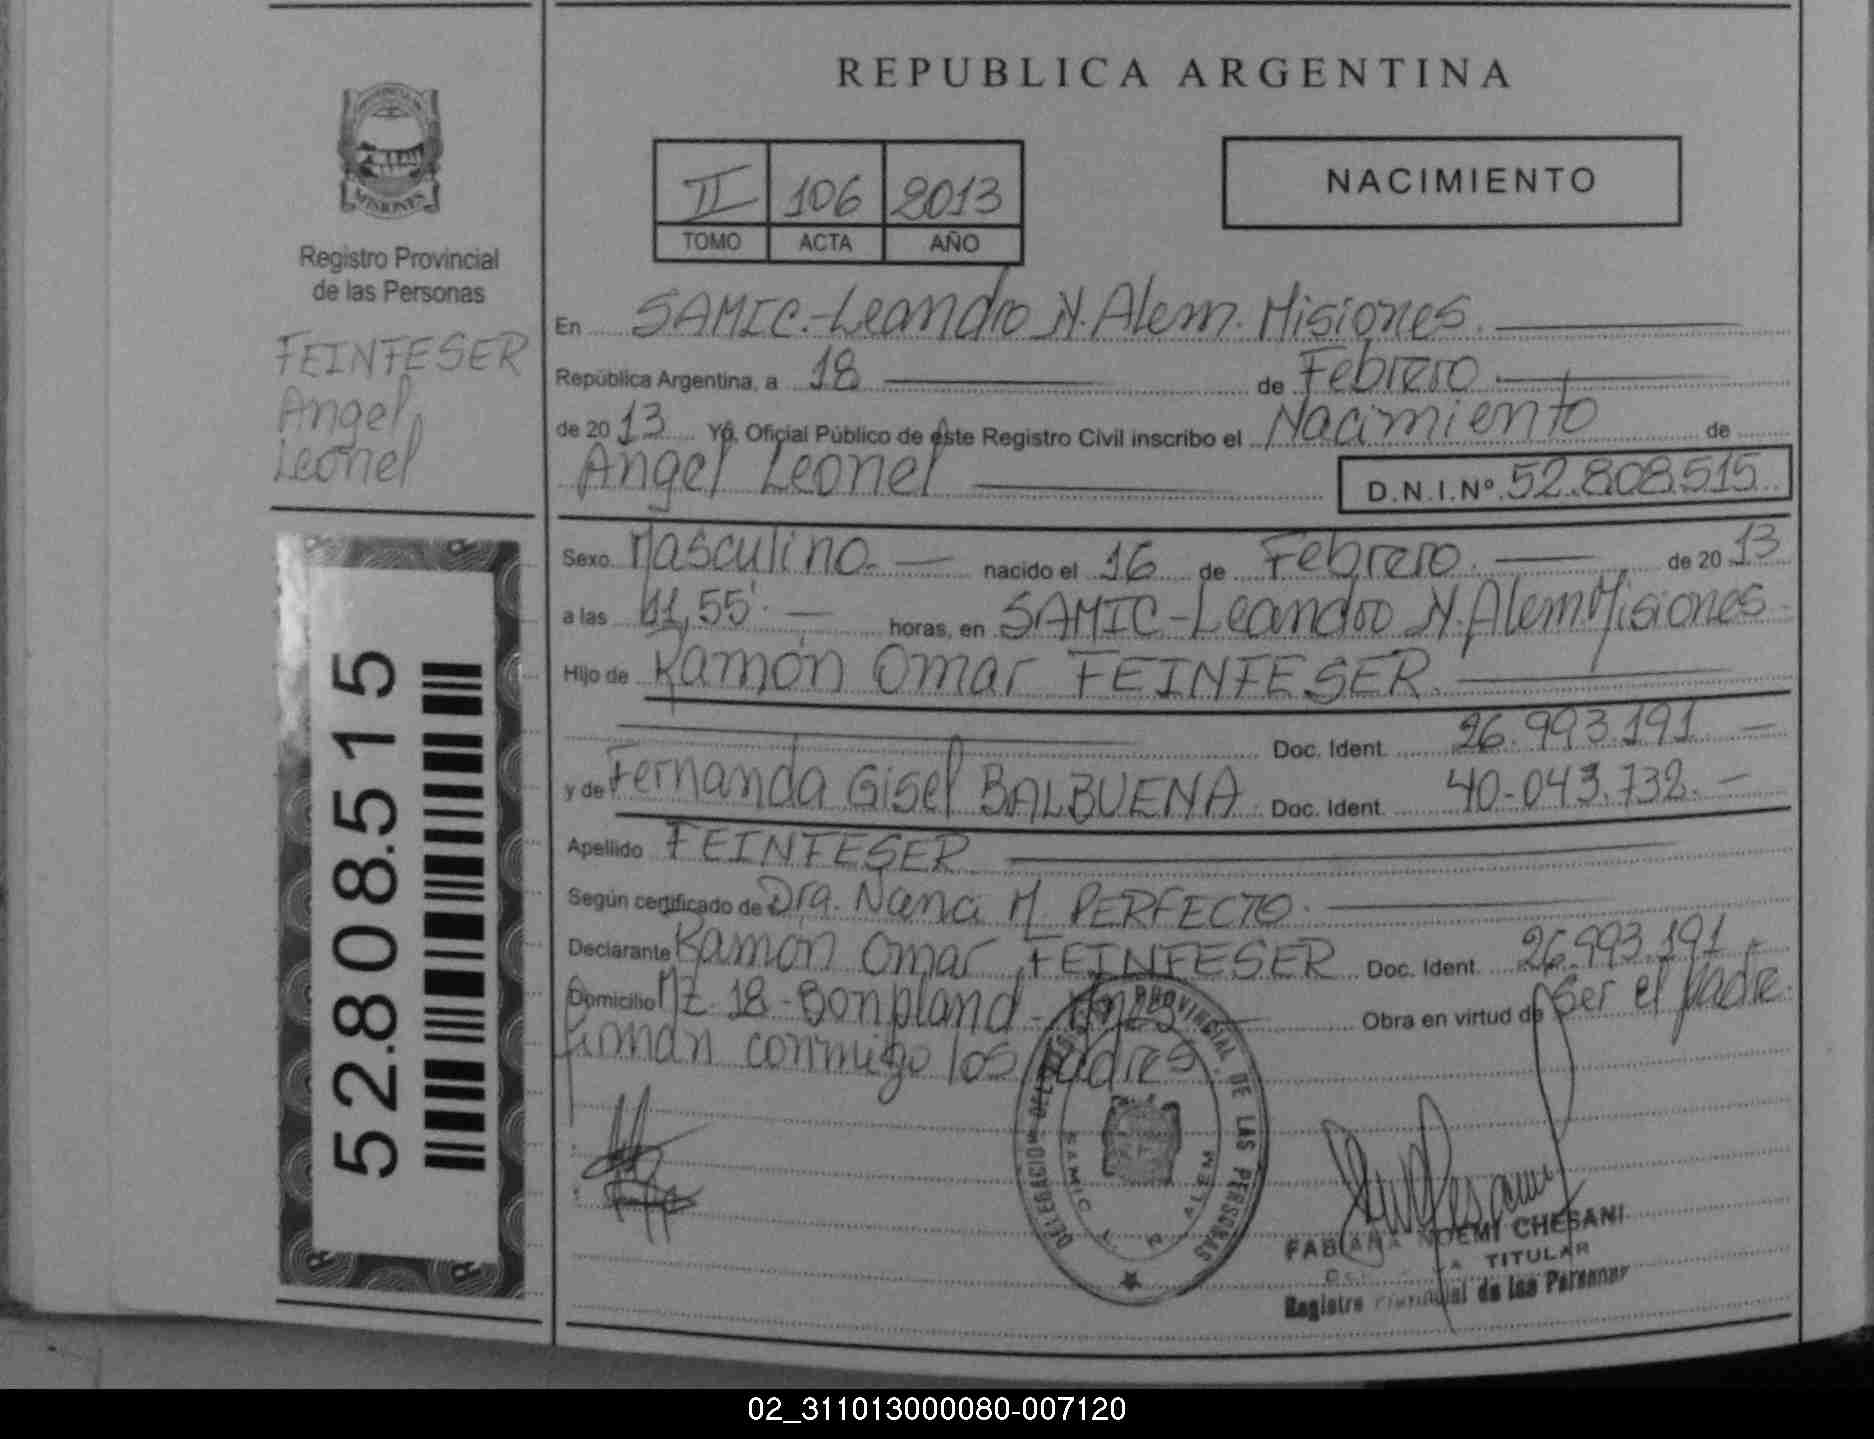 REPUBLICA ARGENTINA
NACIMIENTO
II 106 2013
TOMO ACTA AÑO
MISIONES
Registro Provincial
de las Personas
FEINFESER
Angel
Leonel
En SAMIC.-Leandro N. Alem. Misiones.
República Argentina, a 18 de Febrero
de 2013 Yo, Oficial Público de este Registro Civil inscribo el Nacimiento de
Angel Leonel D.N.I.Nº 52.808.515
Sexo Masculino. nacido el 16 de Febrero. de 2013
a las 11,55' horas, en SAMIC-Leandro N. Alem Misiones
Hijo de Ramón Omar FEINFESER.
Doc. Ident. 26.993.191
y de Fernanda Gisel BALBUENA Doc. Ident. 40.043.732.
Apellido FEINFESER
Según certificado de Dra. M. PERFECTO.
Declarante Ramón Omar FEINFESER Doc. Ident. 26.993.191
Domicilio Mz. 18 - Bonpland - Mnes Obra en virtud de Ser el padre.
firman conmigo los padres
52.808.515
DELEGACION DEL REGISTRO PROVINCIAL DE LAS PERSONAS
SAMIC L. N. ALEM
FABIANA NOEMI CHESANI
TITULAR
Registro Provincial de las Personas
02_311013000080-007120